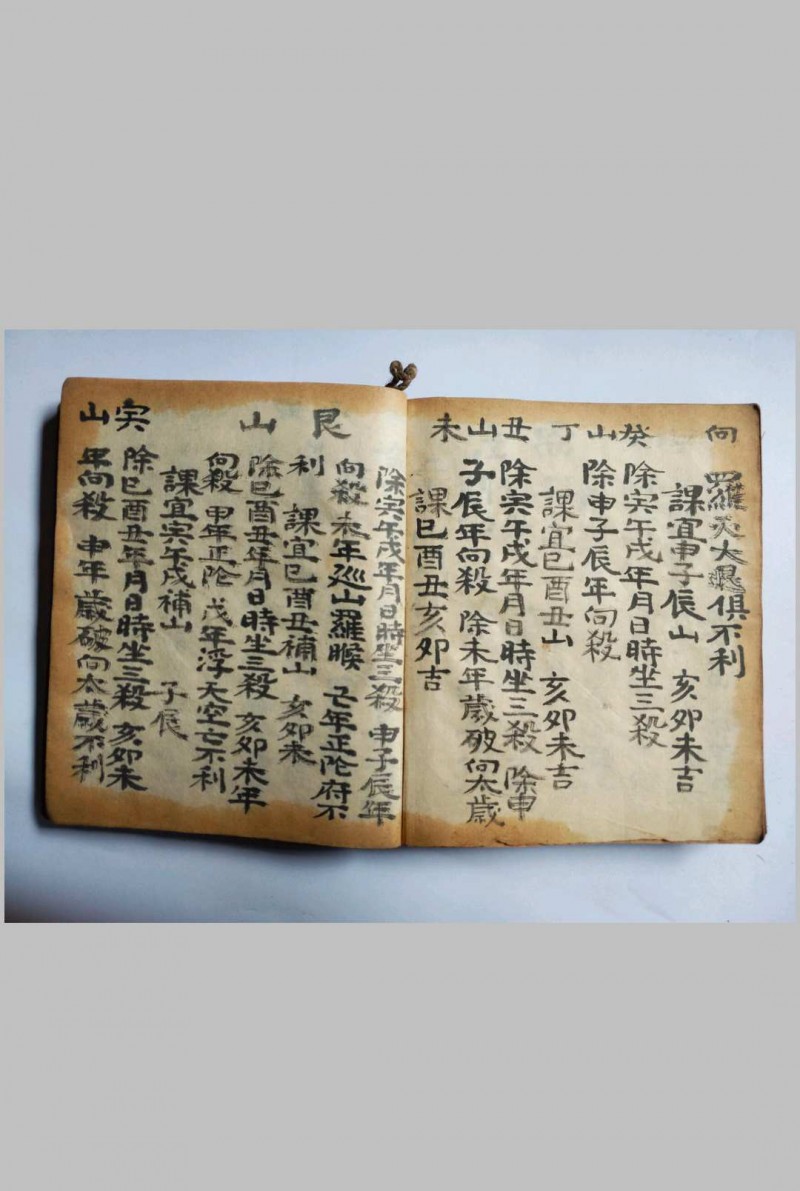 向 癸山丁 丑山未
羅天大退俱不利
課宜申子辰山 亥卯未吉
除寅午戌年月日時坐三殺
除申子辰年向殺
課宜巳酉丑山 亥卯未吉
除寅午戌年月日時坐三殺 除申
子辰年向殺 除未年歲破向太歲
課巳酉丑亥卯吉
艮山 寅山
除寅午戌年月日時坐三殺 申子辰年
向殺 未年巡山羅睺 亡年正陀府不
利 課宜巳酉丑補山 亥卯未
除巳酉丑年月日時坐三殺 亥卯未年
向殺 甲年正陀 戊年浮天空亡不利
課宜寅午戌補山 子辰
除巳酉丑年月日時坐三殺 亥卯未
年向殺 申年歲破向太歲不利